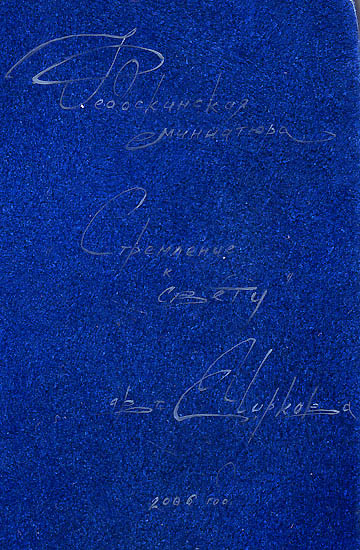 Федоскинская
миниатюра
Стремление
к
свету"
авт. Е. Чиркова
2006 год